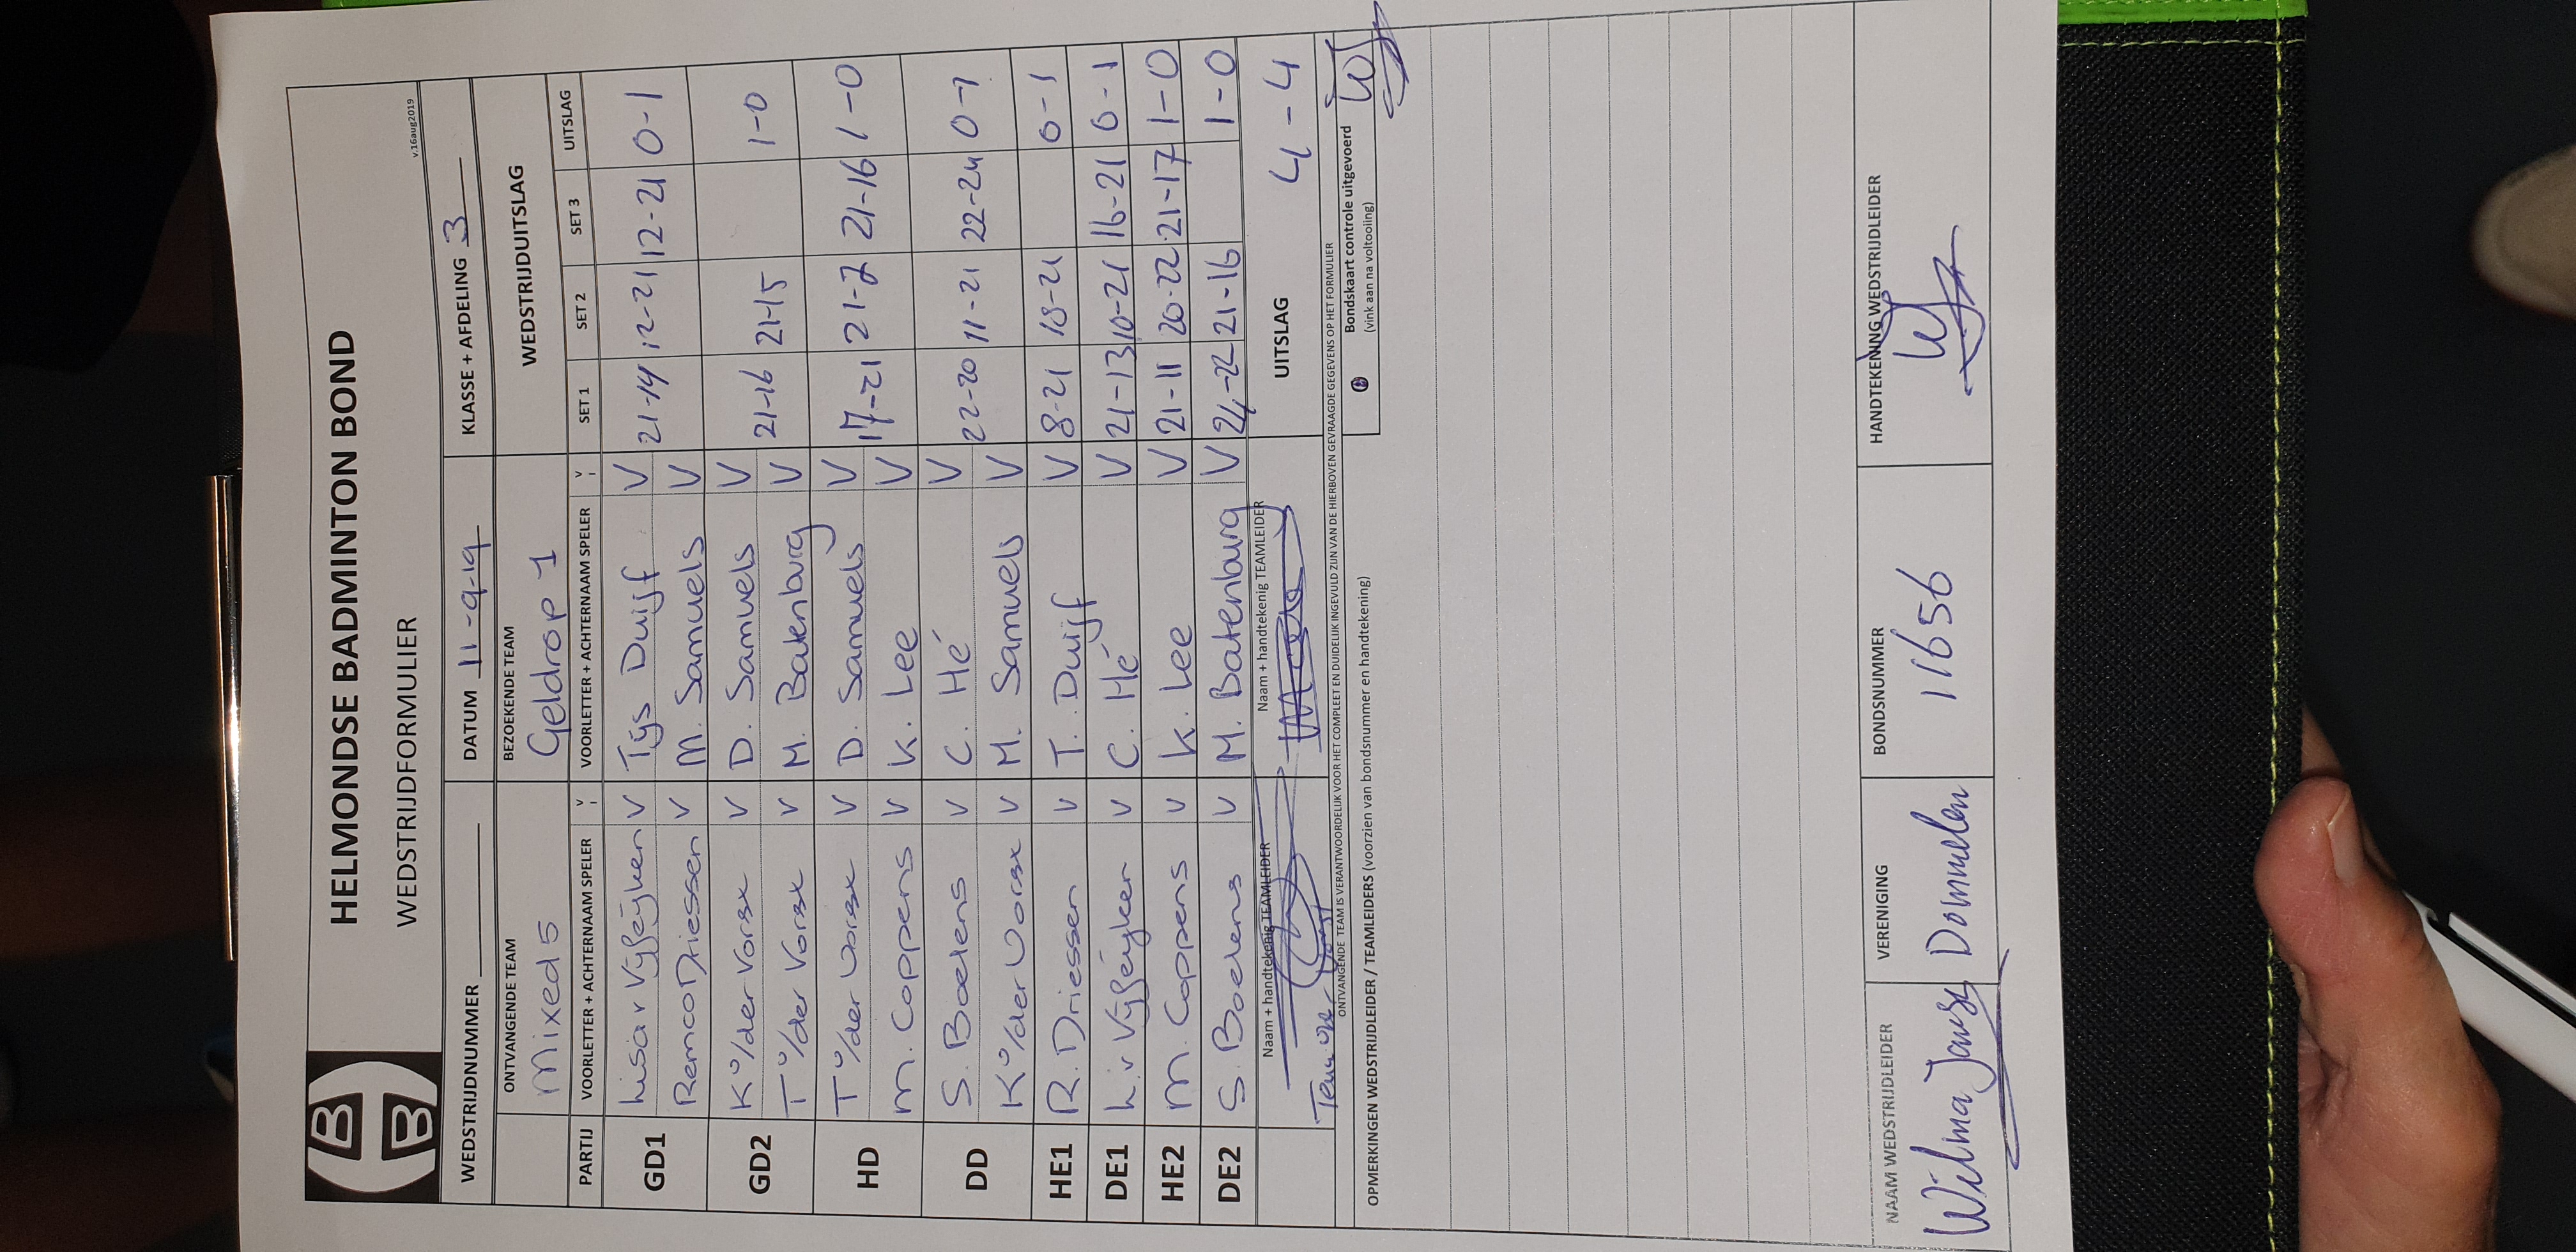 HELMONDSE BADMINTON BOND
WEDSTRIJDFORMULIER
v.16aug2019
WEDSTRIJDNUMMER DATUM 11-9-19 KLASSE + AFDELING 3
ONTVANGENDE TEAM BEZOEKENDE TEAM WEDSTRIJDUITSLAG
Mixed 5 Geldrop 1
PARTIJ VOORLETTER + ACHTERNAAM SPELER V VOORLETTER + ACHTERNAAM SPELER V SET 1 SET 2 SET 3 UITSLAG
GD1 Lisa v Vijfeijken V Tijs Duijf V 21-14 12-21 12-21 0-1
Remco Driessen V M. Samuels V
GD2 K v/der Vorst V D. Samuels V 21-16 21-15 1-0
T v/der Vorst V M. Batenburg V
HD T v/der Vorst V D. Samuels V 17-21 21-7 21-16 1-0
M. Coppens V K. Lee V
DD S. Boelens V C. Hé V 22-20 11-21 22-24 0-1
K v/der Vorst V M. Samuels V
HE1 R. Driessen V T. Duijf V 8-21 18-21 0-1
DE1 L. v Vijfeijken V C. Hé V 21-13 10-21 16-21 0-1
HE2 M. Coppens V K. Lee V 21-11 20-22 21-17 1-0
DE2 S. Boelens V M. Batenburg V 24-22 21-16 1-0
Naam + handtekenig TEAMLEIDER Naam + handtekenig TEAMLEIDER UITSLAG 4-4
ONTVANGENDE TEAM IS VERANTWOORDELIJK VOOR HET COMPLEET EN DUIDELIJK INGEVULD ZIJN VAN DE HIERBOVEN GEVRAAGDE GEGEVENS OP HET FORMULIER
Bondskaart controle uitgevoerd
(vink aan na voltooiing)
OPMERKINGEN WEDSTRIJDLEIDER / TEAMLEIDERS (voorzien van bondsnummer en handtekening)
NAAM WEDSTRIJDLEIDER VERENIGING BONDSNUMMER HANDTEKENING WEDSTRIJDLEIDER
Wilma Dommelen 11656